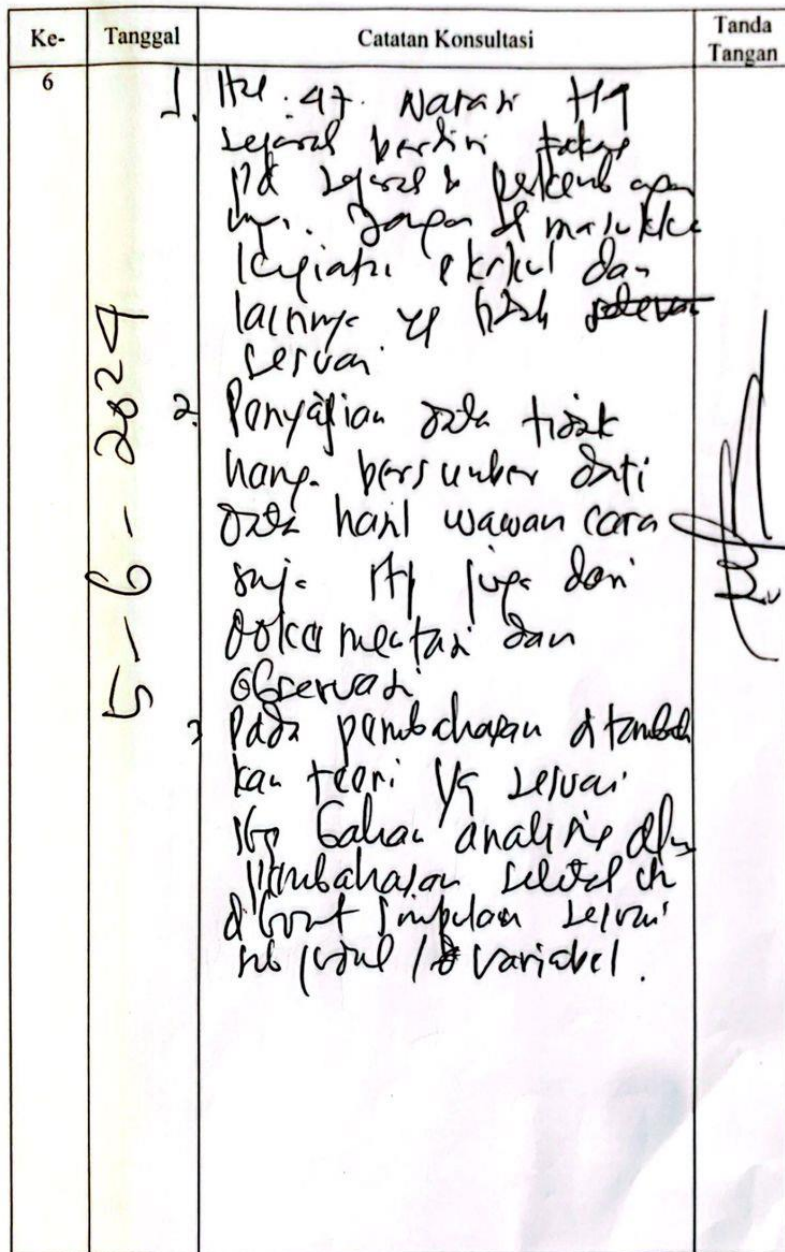 Ke- Tanggal Catatan Konsultasi Tanda Tangan
6
5-6-2024
1. Hal. 47. Narasi ttg
sejarah berdiri fokus
pd sejarah & perkembangan
nya. Jangan dimasukkan
kegiatan ekskul dan
lainnya yg tidak relevan
sesuai
2. Penyajian data tidak
hanya bersumber dari
data hasil wawancara
saja ttp juga dari
dokumentasi dan
observasi
3 Pada pembahasan ditambah
kan teori yg sesuai
sbg bahan analisis dlm
pembahasan setelah
dibuat simpulan sesuai
sub / variabel.